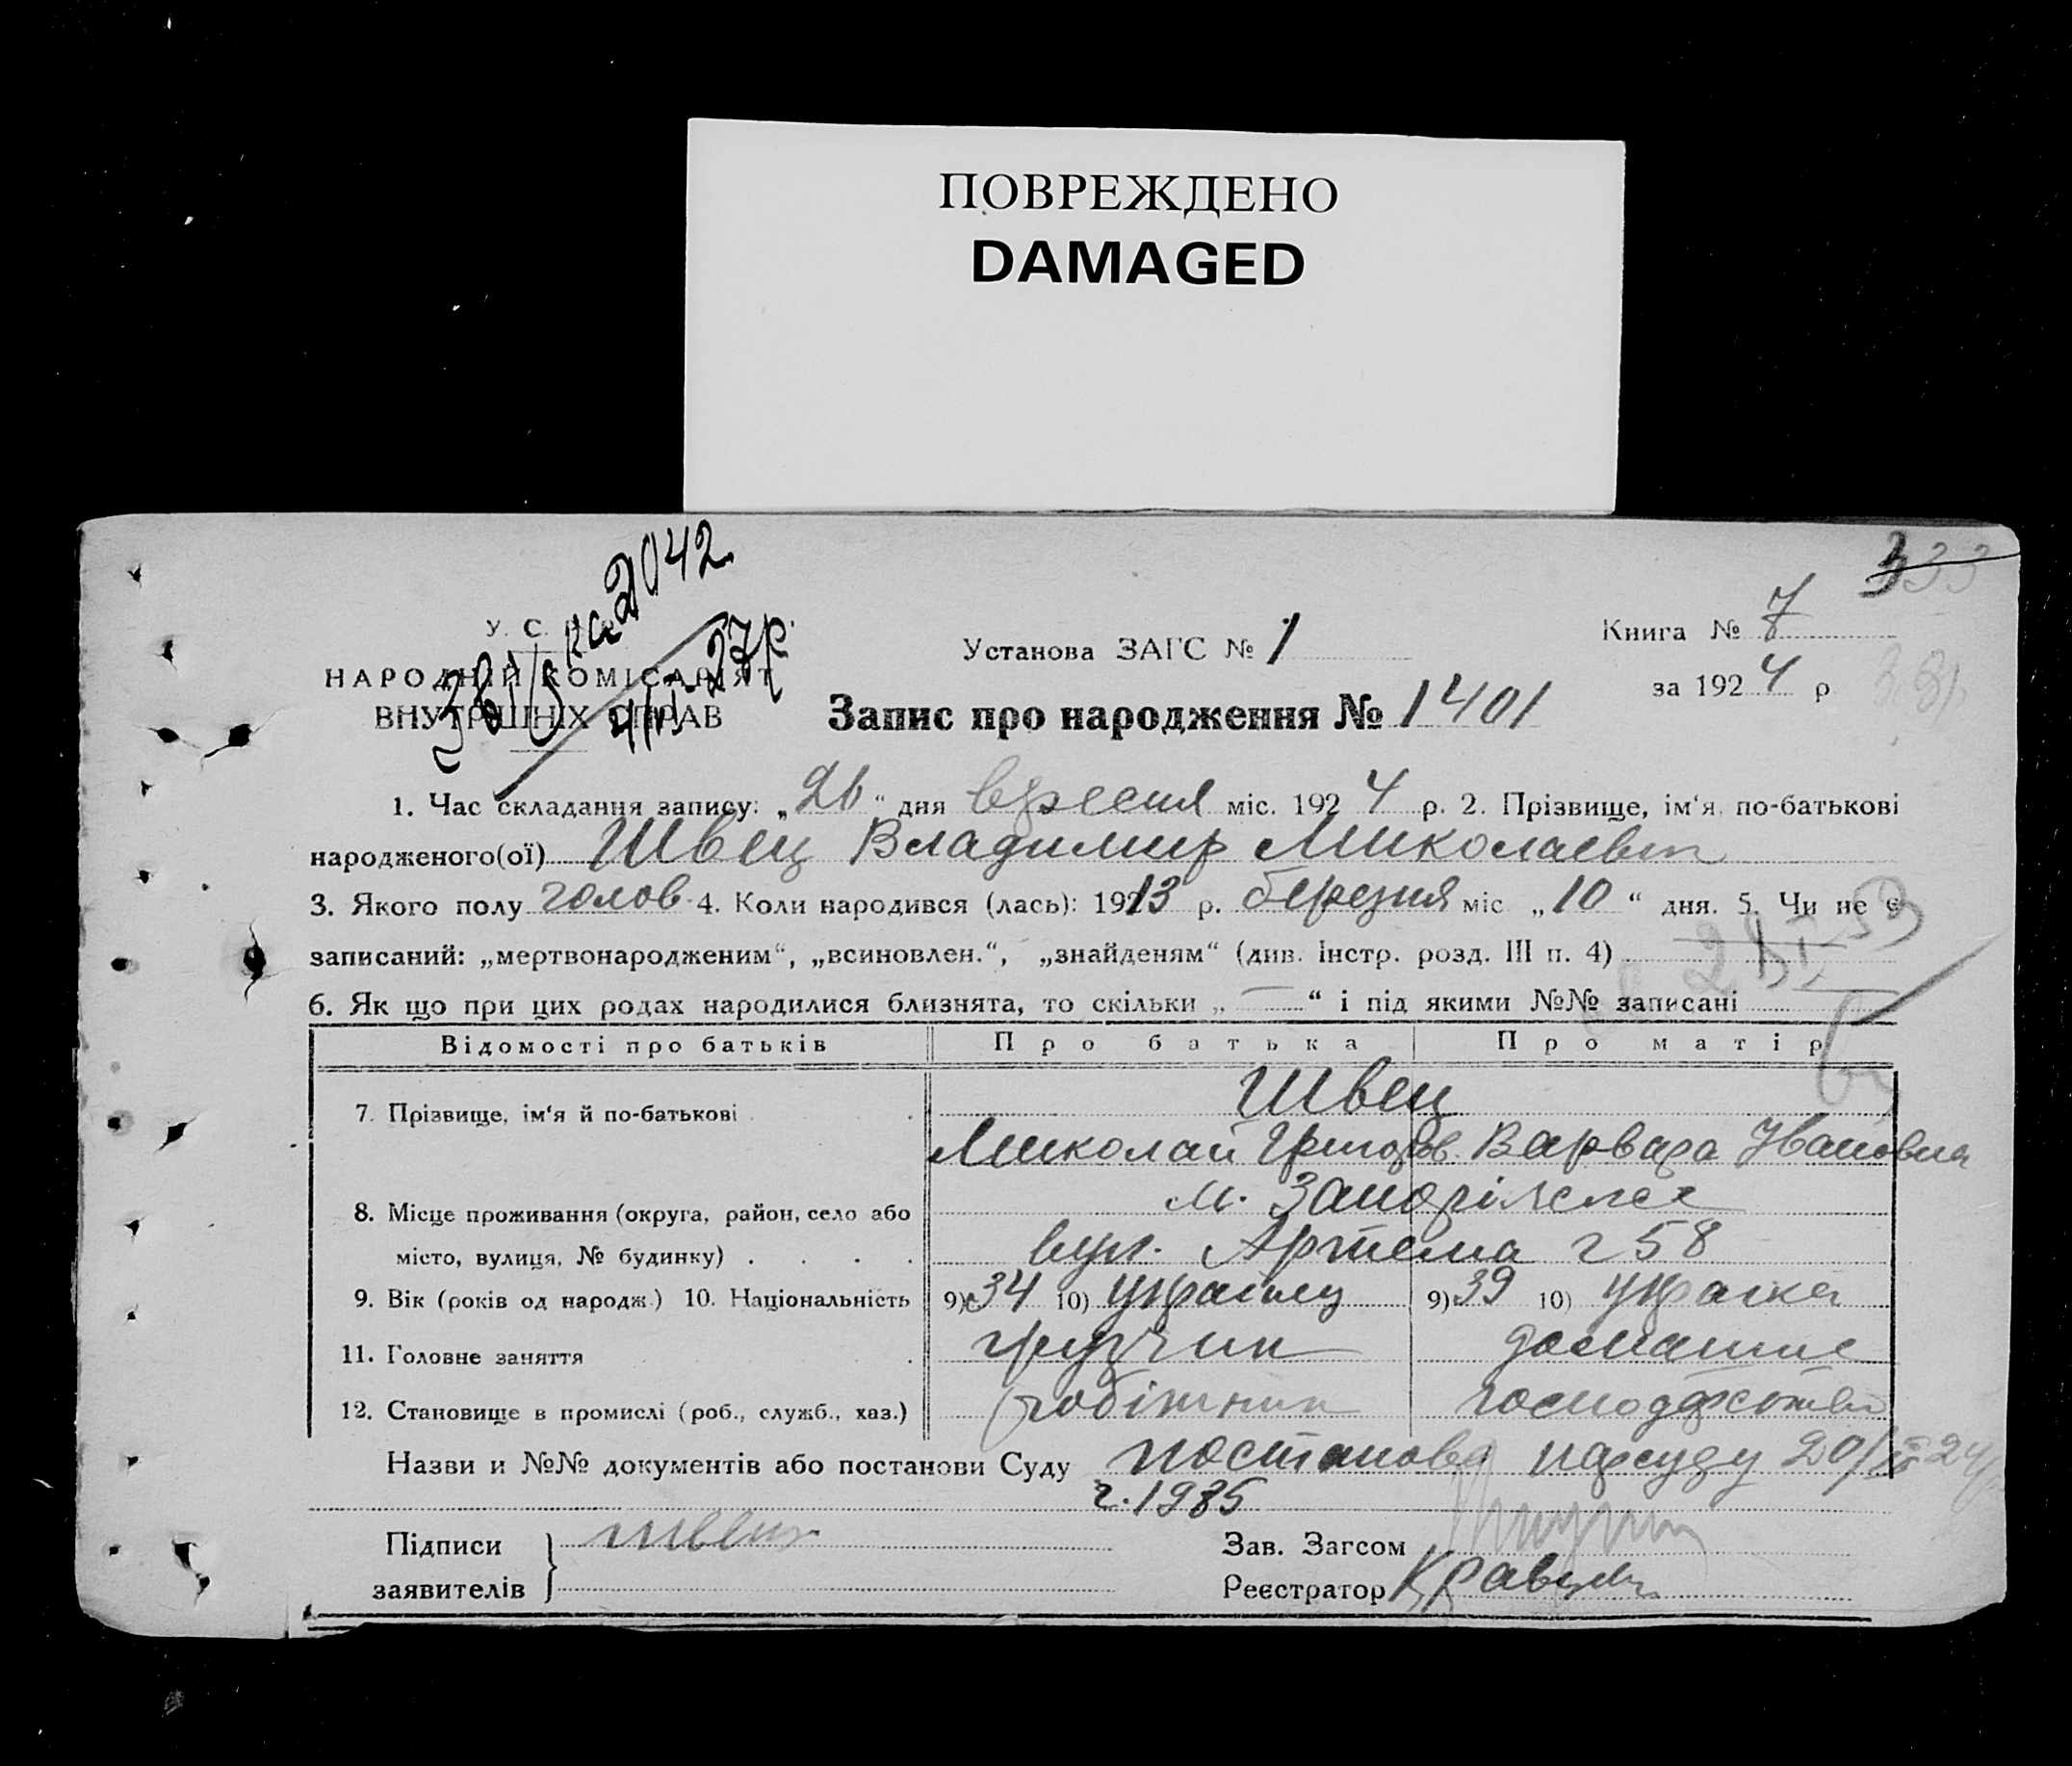 ПОВРЕЖДЕНО
DAMAGED
2042
27р.
333
У. С.
НАРОДНІЙ КОМІСАРІЯТ
ВНУТРІШНІХ СПРАВ
Установа ЗАГС № 1
Книга № 7
за 1924 р
Запис про народження № 1401
1. Час складання запису: „26“ дня вересня міс. 1924 р. 2. Прізвище, ім‘я по-батькові
народженого(ої) Швец Владимир Миколаевич
3. Якого полу голов 4. Коли народився (лась): 19213 р. березня міс „10“ дня. 5. Чи не є
записаний: „мертвонародженим“, „всиновлен.“, „знайденям“ (див. Інстр. розд. III п. 4)
6. Як що при цих родах народилися близнята, то скільки „—“ і під якими №№ записані
Відомості про батьків Про батька Про матір
7. Прізвище, ім‘я й по-батькові Швец
Миколай Григоров. Варвара Ивановна
8. Місце проживання (округа, район, село або м. Запоріжже
місто, вулиця, № будинку) вул. Артема 58
9. Вік (років од народж.) 10. Національність 9) 34 10) украінец 9) 39 10) украінка
11. Головне заняття домашне
12. Становище в промислі (роб., служб., хаз.) робітник господарство
Назви и №№ документів або постанови Суду постанова нарсуду 20/IX 24
г. 1985
Підписи Швец Зав. Загсом
заявителів Реєстратор